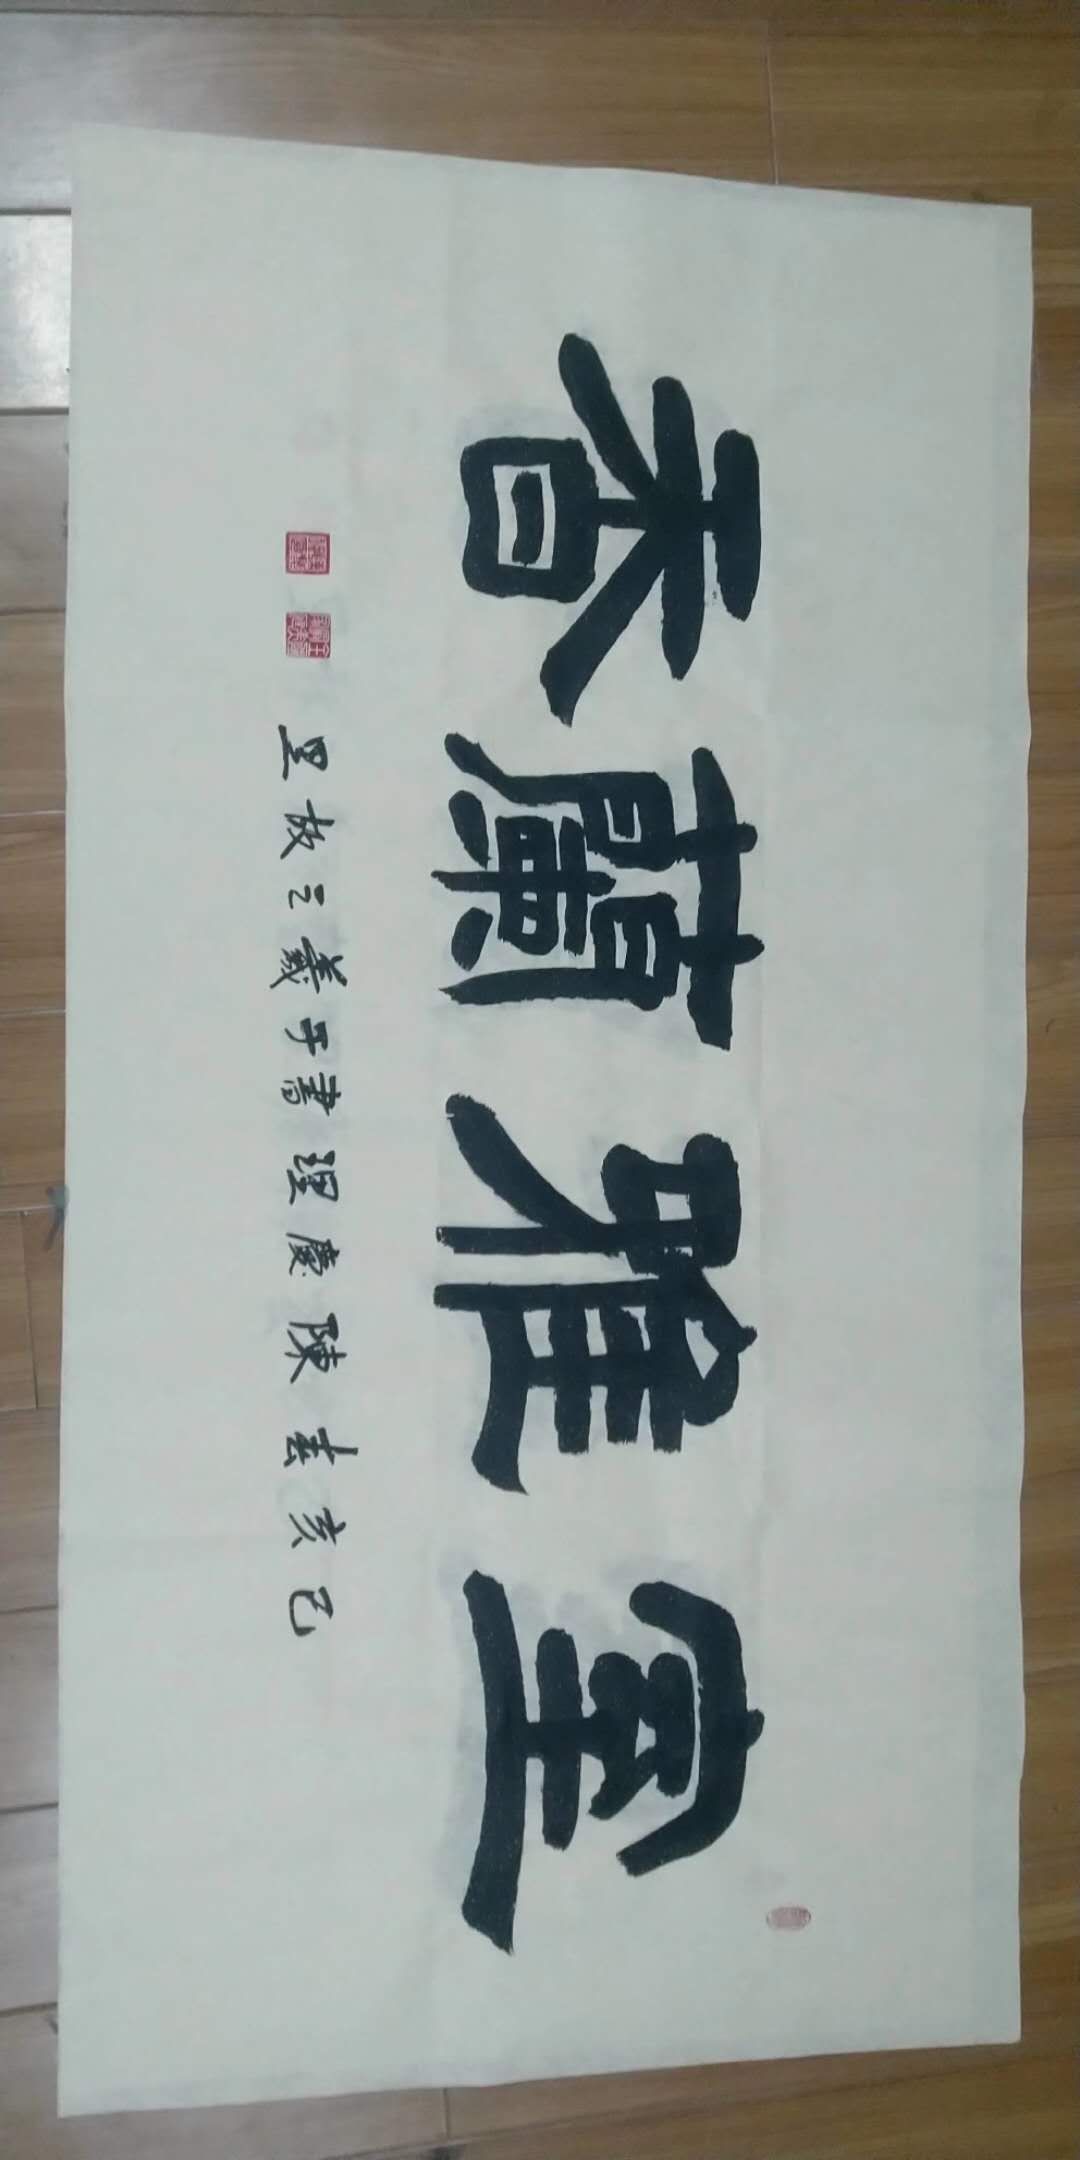 室雅蘭香
己亥陳慶書于羲之故里